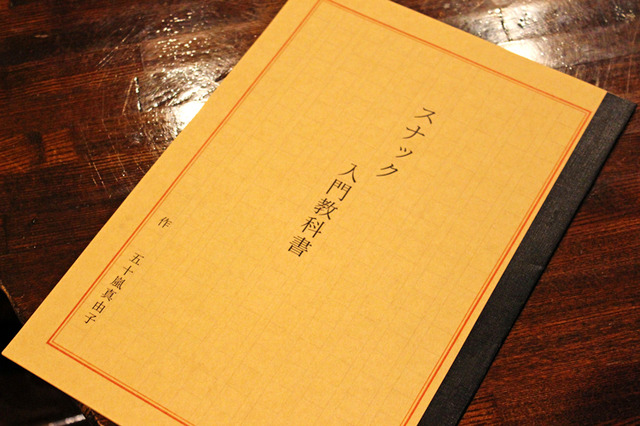 スナック 入門教科書
作 五十嵐真由子